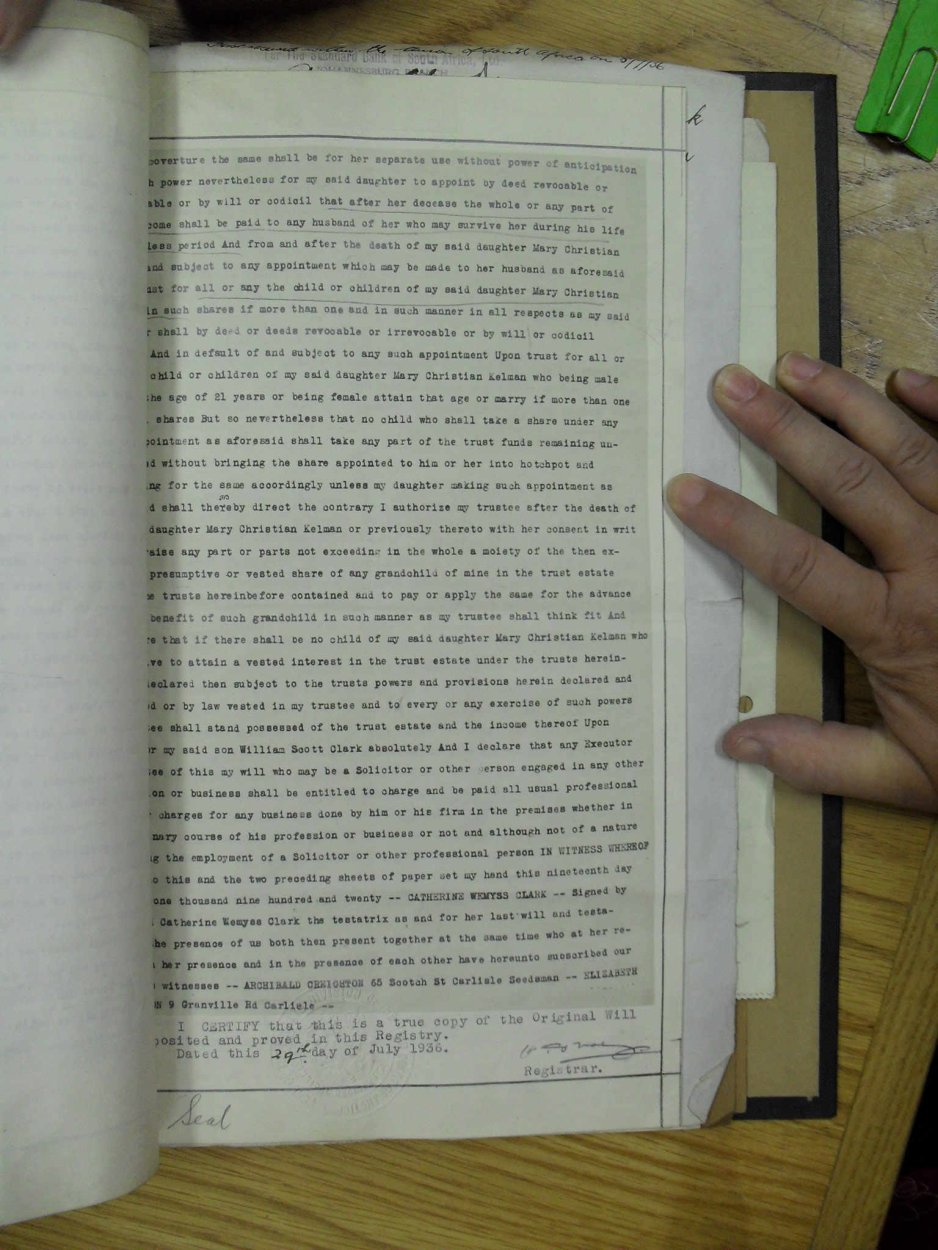 within the of South Africa on
For The Standard Bank of South Africa, Ltd.
JOHANNESBURG BRANCH
k
overture the same shall be for her separate use without power of anticipation
h power nevertheless for my said daughter to appoint by deed revocable or
able or by will or codicil that after her decease the whole or any part of
come shall be paid to any husband of her who may survive her during his life
less period And from and after the death of my said daughter Mary Christian
and subject to any appointment which may be made to her husband as aforesaid
ust for all or any the child or children of my said daughter Mary Christian
in such shares if more than one and in such manner in all respects as my said
r shall by deed or deeds revocable or irrevocable or by will or codicil
And in default of and subject to any such appointment Upon trust for all or
child or children of my said daughter Mary Christian Kelman who being male
he age of 21 years or being female attain that age or marry if more than one
shares But so nevertheless that no child who shall take a share under any
pointment as aforesaid shall take any part of the trust funds remaining un-
d without bringing the share appointed to him or her into hotchpot and
ng for the same accordingly unless my daughter making such appointment as
d shall thereby direct the contrary I authorize my trustee after the death of
daughter Mary Christian Kelman or previously thereto with her consent in writ
aise any part or parts not exceeding in the whole a moiety of the then ex-
presumptive or vested share of any grandchild of mine in the trust estate
e trusts hereinbefore contained and to pay or apply the same for the advance
benefit of such grandchild in such manner as my trustee shall think fit And
re that if there shall be no child of my said daughter Mary Christian Kelman who
ve to attain a vested interest in the trust estate under the trusts herein-
eclared then subject to the trusts powers and provisions herein declared and
d or by law vested in my trustee and to every or any exercise of such powers
ee shall stand possessed of the trust estate and the income thereof Upon
or my said son William Scott Clark absolutely And I declare that any Executor
ee of this my will who may be a Solicitor or other person engaged in any other
on or business shall be entitled to charge and be paid all usual professional
charges for any business done by him or his firm in the premises whether in
nary course of his profession or business or not and although not of a nature
g the employment of a Solicitor or other professional person IN WITNESS WHEREOF
o this and the two preceding sheets of paper set my hand this nineteenth day
one thousand nine hundred and twenty -- CATHERINE WEMYSS CLARK -- Signed by
Catherine Wemyss Clark the testatrix as and for her last will and testa-
he presence of us both then present together at the same time who at her re-
her presence and in the presence of each other have hereunto subscribed our
witnesses -- ARCHIBALD CREIGHTON 65 Scotch St Carlisle Seedsman -- ELIZABETH
N 9 Granville Rd Carlisle --
I CERTIFY that this is a true copy of the Original Will
posited and proved in this Registry.
Dated this 29th day of July 1936.
Registrar.
Seal